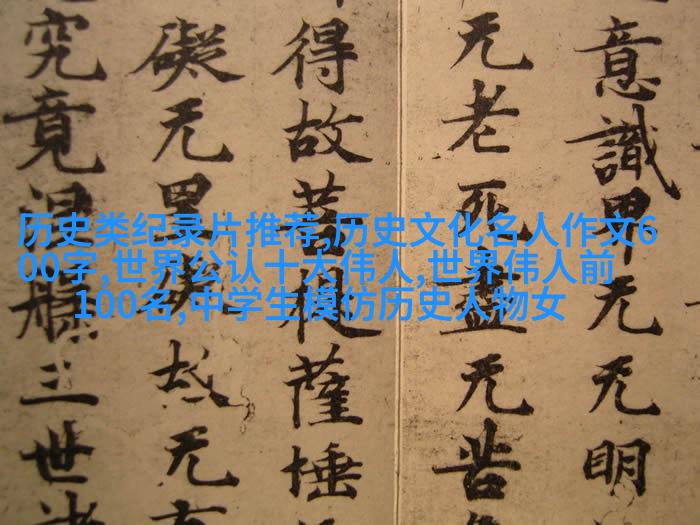 历史类纪录片推荐,历史文化名人作文6
00字,世界公认十大伟人,世界伟人前
100名,中学生模仿历史人物女
意識界无无明
无老死盡无苦
得故菩提薩埵
礙无罣礙故无有
究竟涅槃三世諸